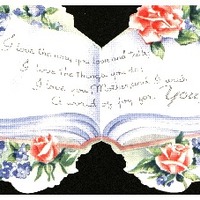 I love the way you look and
I love the things you do,
I love you Mother and I wish
A world of joy for You